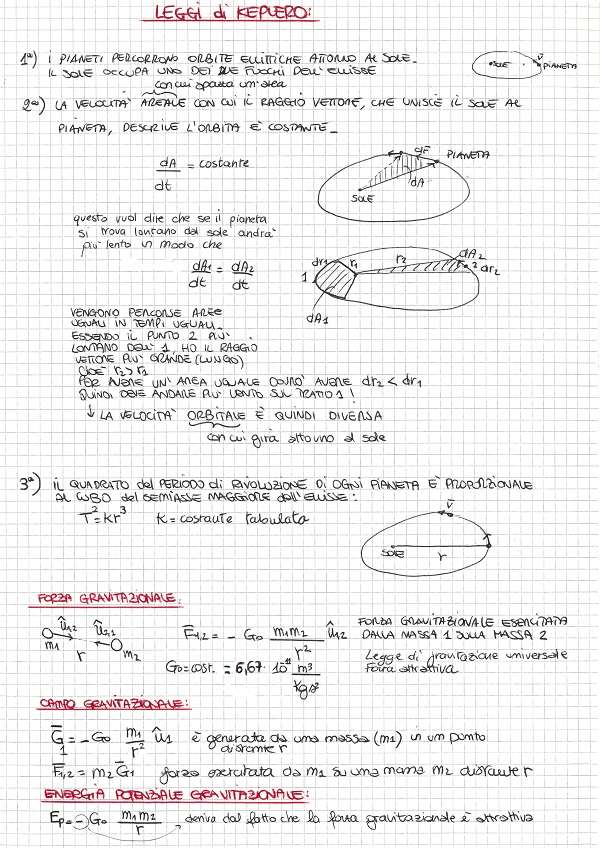 LEGGI di KEPLERO:
1ª) I PIANETI PERCORRONO ORBITE ELLITTICHE ATTORNO AL SOLE.
IL SOLE OCCUPA UNO DEI DUE FUOCHI DELL'ELLISSE
SOLE
v̄
PIANETA
con cui spazza un'area
2ª) LA VELOCITA' AREALE CON CUI IL RAGGIO VETTORE, CHE UNISCE IL SOLE AL
PIANETA, DESCRIVE L'ORBITA E' COSTANTE_
dA/dt = costante
dr̄
PIANETA
dA
SOLE
questo vuol dire che se il pianeta
si trova lontano dal sole andra'
piu' lento in modo che
dA1/dt = dA2/dt
dr1
r1
r2
dA2
2
dr2
1
dA1
VENGONO PERCORSE AREE
UGUALI IN TEMPI UGUALI_
ESSENDO IL PUNTO 2 PIU'
LONTANO DELL' 1, HO IL RAGGIO
VETTORE PIU' GRANDE (LUNGO)
CIOE' r2>r1
PER AVERE UN'AREA UGUALE DOVRO' AVERE dr2 < dr1
QUINDI DEVE ANDARE PIU' LENTO SUL TRATTO 1!
↓ LA VELOCITA' ORBITALE E' QUINDI DIVERSA
con cui gira attorno al sole
3ª) IL QUADRATO del PERIODO di RIVOLUZIONE DI OGNI PIANETA E' PROPORZIONALE
AL CUBO del SEMIASSE MAGGIORE dell'ELLISSE:
T² = Kr³ K = costante tabulata
v̄
SOLE
r
FORZA GRAVITAZIONALE:
û1,2 û2,1
m1 r m2
F̄1,2 = - G0 m1m2/r² û12
FORZA GRAVITAZIONALE ESERCITATA
DALLA MASSA 1 SULLA MASSA 2
Legge di gravitazione universale
Forza attrattiva
G0 = cost. = 6,67 · 10⁻¹¹ m³/kg s²
CAMPO GRAVITAZIONALE:
Ḡ1 = - G0 m1/r² û1 è generata da una massa (m1) in un punto
distante r
F̄1,2 = m2 Ḡ1 forza esercitata da m1 su una massa m2 distante r
ENERGIA POTENZIALE GRAVITAZIONALE:
Ep = - G0 m1m2/r deriva dal fatto che la forza gravitazionale è attrattiva